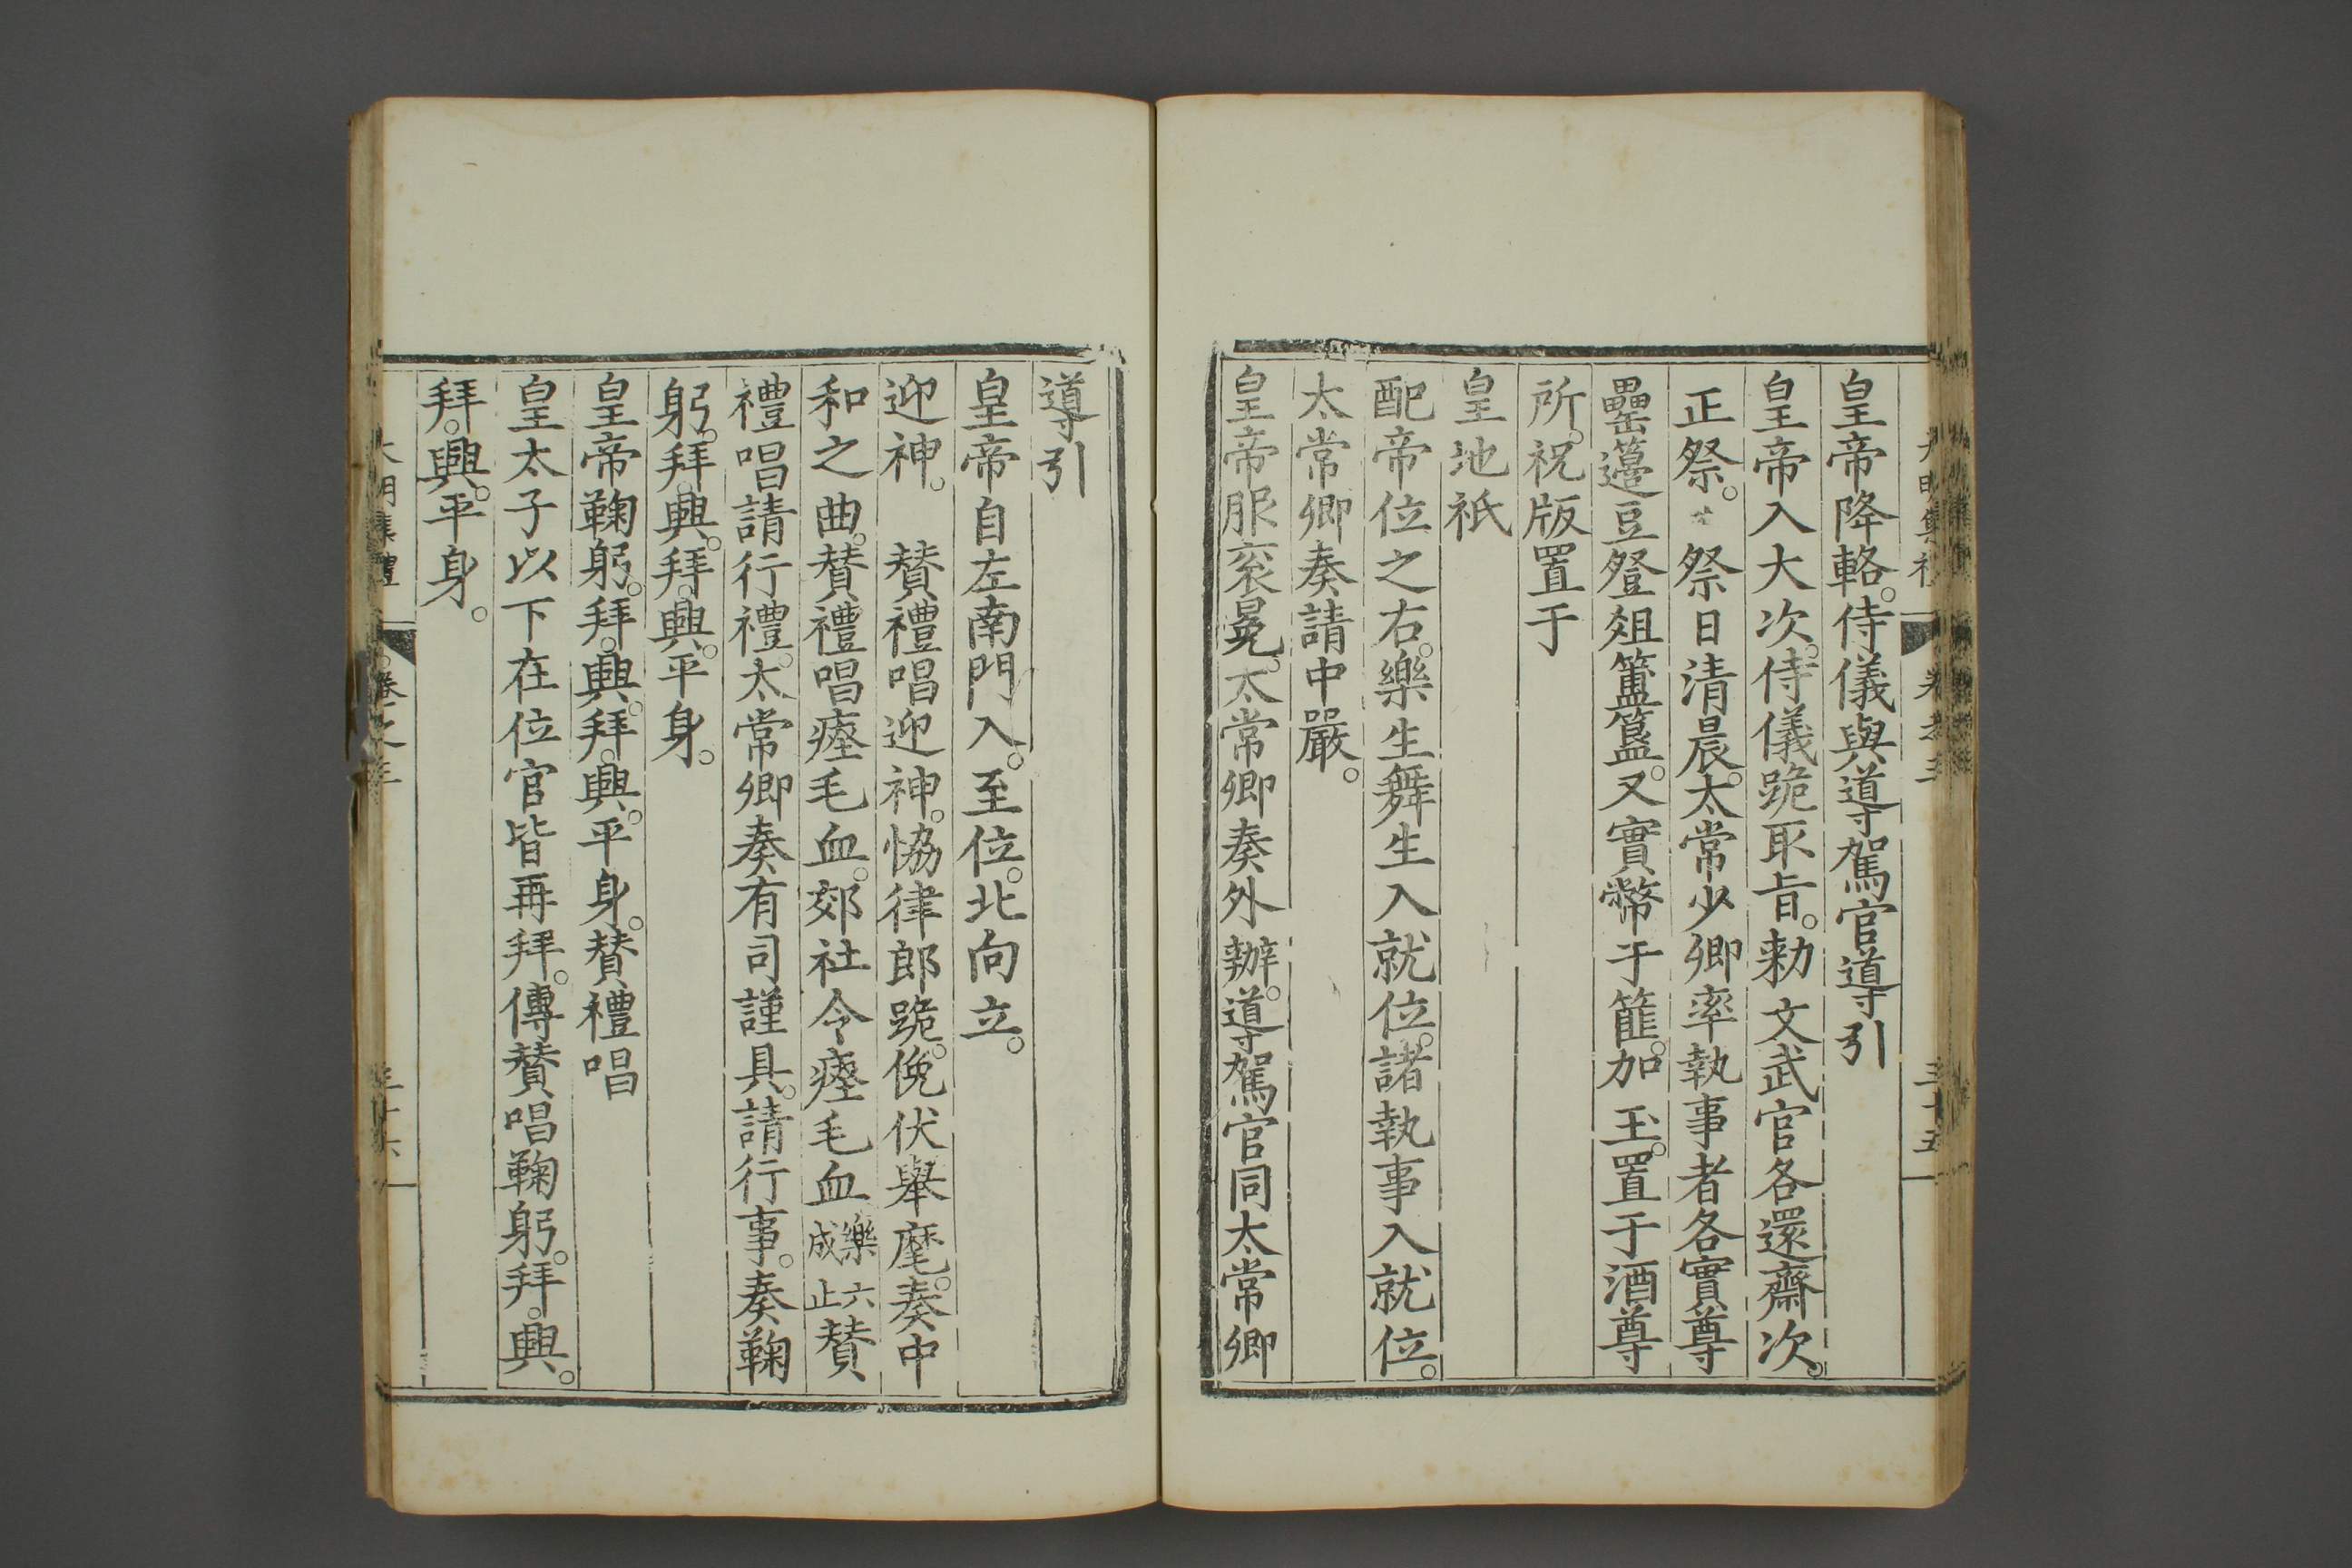 皇帝降輅。侍儀與導駕官導引
皇帝入大次。侍儀跪取旨。勑文武官各還齋次。
正祭。祭日清晨。太常少卿率執事者各實尊
罍籩豆登俎簠簋。又實幣于篚。加玉。置于酒尊
所。祝版置于
皇地祇
配帝位之右。樂生舞生入就位。諸執事入就位。
太常卿奏請中嚴。
皇帝服衮冕。太常卿奏外辦。導駕官同太常卿
導引
皇帝自左南門入。至位。北向立。
迎神。 贊禮唱迎神。恊律郎跪。俛伏舉麾。奏中
和之曲。贊禮唱瘞毛血。郊社令瘞毛血樂六成止贊
禮唱請行禮。太常卿奏有司謹具。請行事。奏鞠
躬。拜。興。拜。興。平身。
皇帝鞠躬。拜。興。拜。興。平身。贊禮唱
皇太子以下在位官皆再拜。傳贊唱鞠躬。拜。興。
拜。興。平身。
大明集禮 卷之三